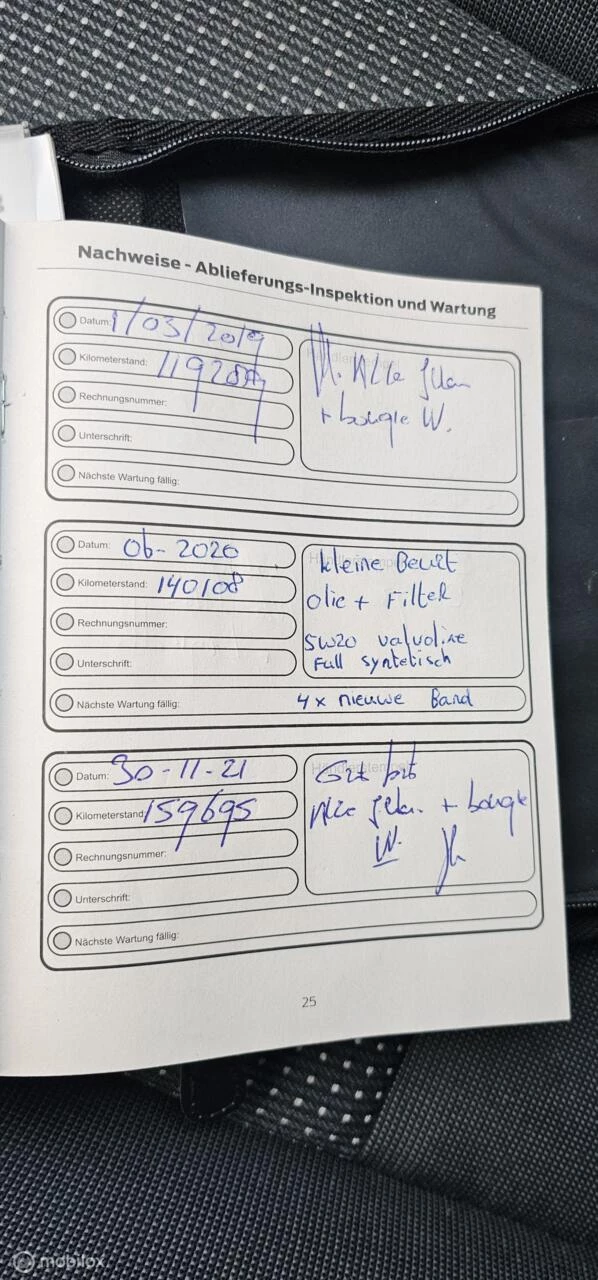 Nachweise - Ablieferungs-Inspektion und Wartung
Datum: 1/03/2019
Kilometerstand:
Rechnungsnummer:
Unterschrift:
Nächste Wartung fällig:
+ bougie W.
Datum: 06-2020
Kilometerstand: 140108
Rechnungsnummer:
Unterschrift:
kleine Beurt
olie + Filter
5W20 valvoline
Full syntetisch
Nächste Wartung fällig: 4x nieuwe Band
Datum: 30-11-21
Kilometerstand: 159695
Rechnungsnummer:
Unterschrift:
Händlerstempel
+ bougie
W.
Nächste Wartung fällig:
25
mobilox